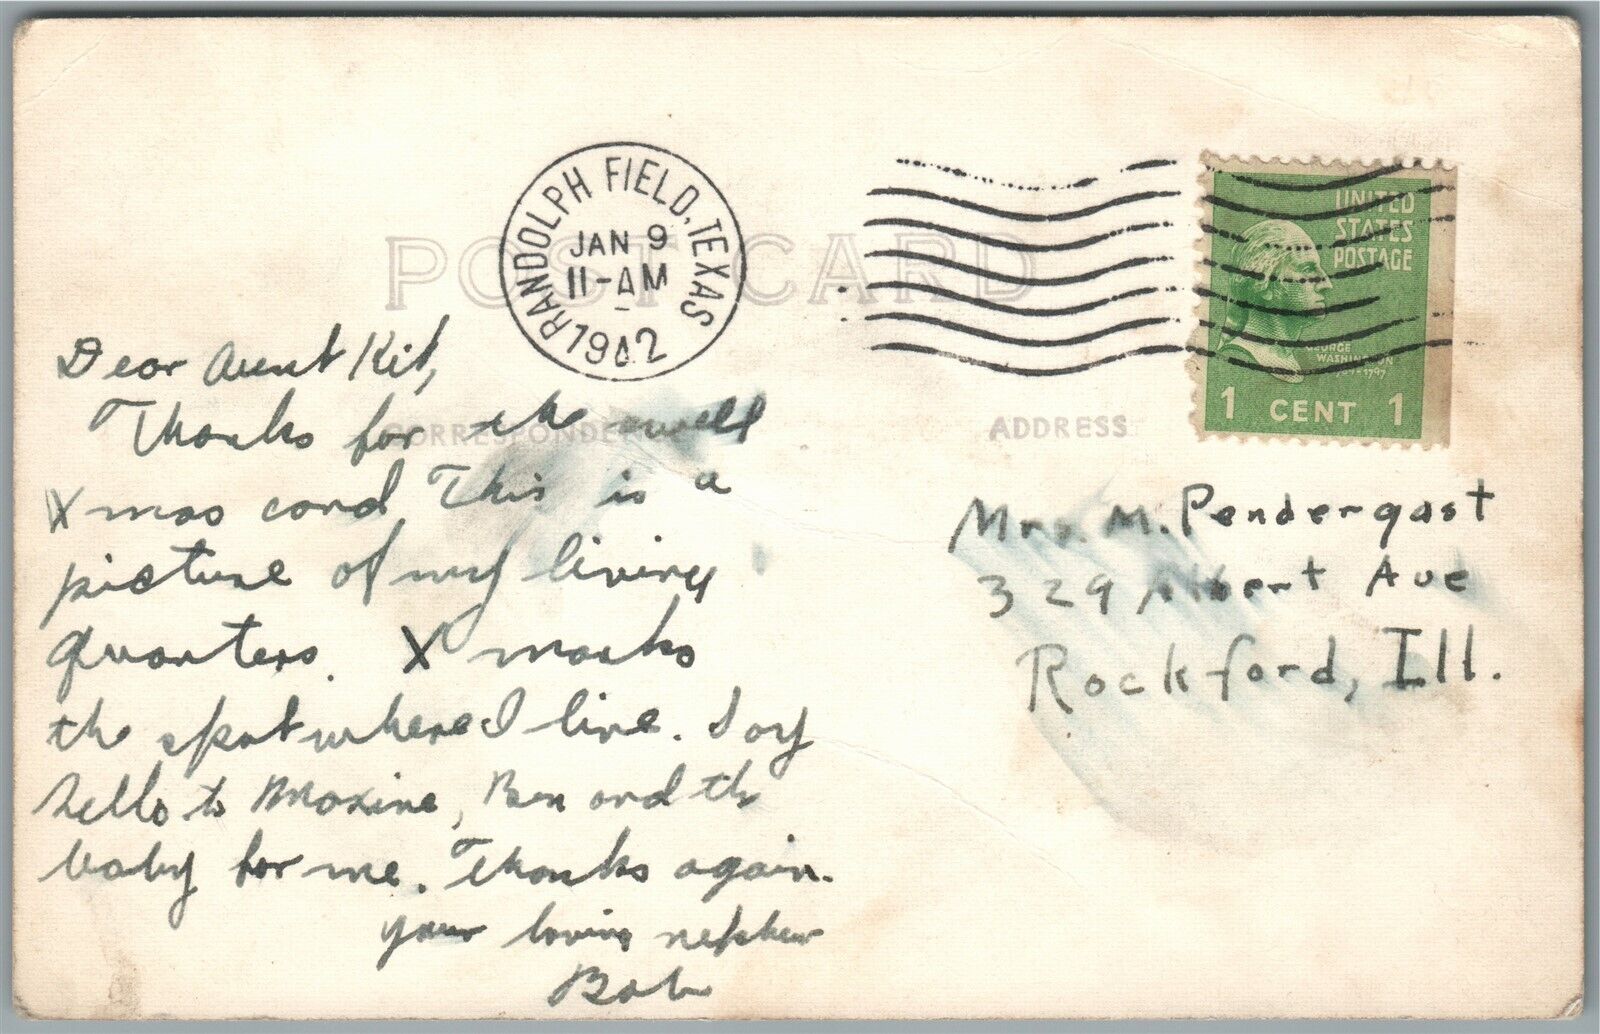 RANDOLPH FIELD, TEXAS
JAN 9
11-AM
1942
POST CARD
UNITED
STATES
POSTAGE
GEORGE
WASHINGTON
1797
1 CENT 1
CORRESPONDEN
ADDRESS
Dear Aunt Kit,
Thanks for the swell
Xmas card This is a
picture of my living
quarters. X marks
the spot where I live. Say
hello to Maxine, Ben and the
baby for me. Thanks again.
your loving nephew
Bob
Mrs. M. Pendergast
329 Albert Ave
Rockford, Ill.